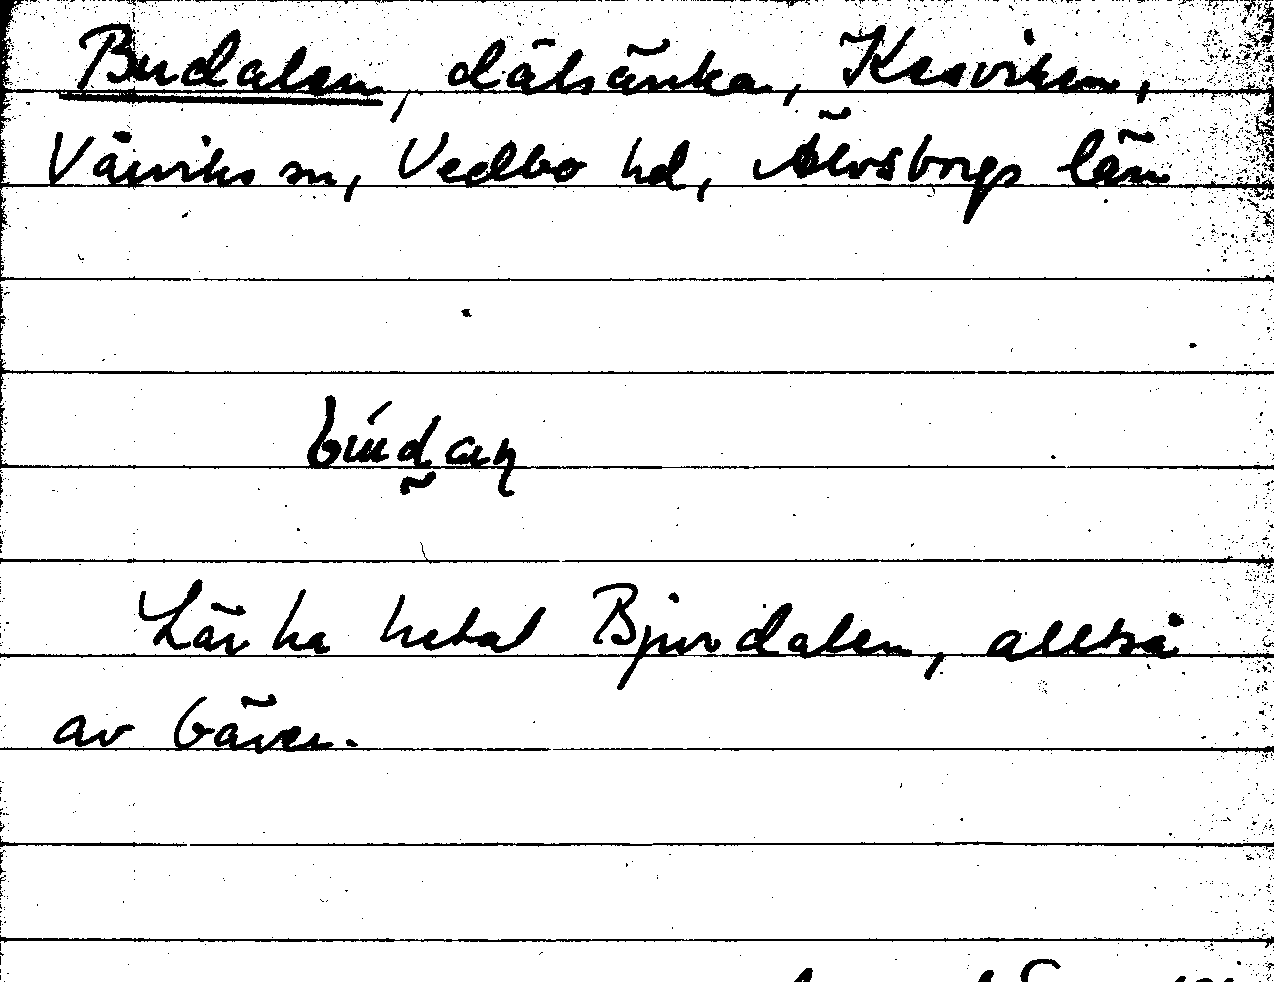 Budalen, dälsänka, Kesviken,
Vårviks sn, Vedbo hd, Älvsborgs län
Lär ha hetat Bjurdalen, alltså
av bäver.